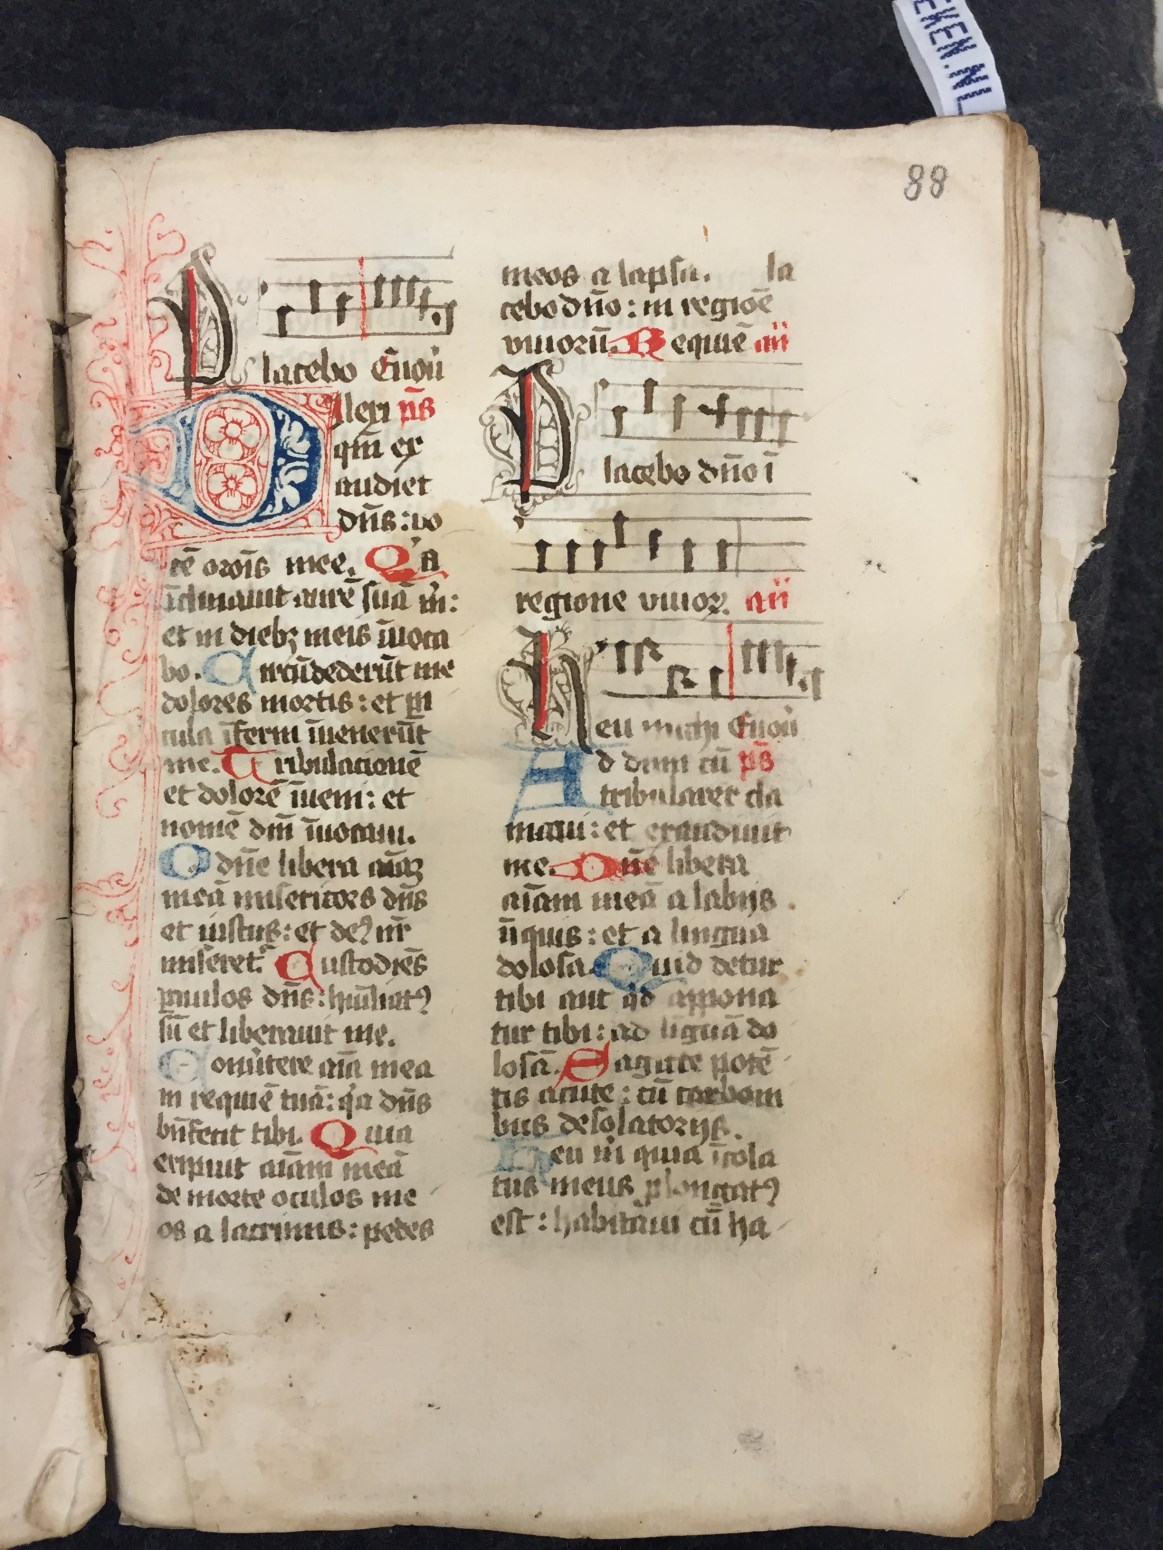 EKEN.NL
88
Placebo Euou
Dilexi p̄s
qm̄ ex
audiet
dn̄s : vo
cē oroīs mee. Qͥa
īclinauit aurē suā m̄ :
et in diebꝫ meis īuoca
bo. Circūdederūt me
dolores mortis : et pi
cula īferni īuenerūt
me. Tribulacionē
et dolorē īueni : et
nomē dnī īuocaui.
O dn̄e libera aīaꝫ
meā misericors dn̄s
et iustus : et deꝰ nr̄
miseret͛. Custodiēs
puulos dn̄s : hūiliatꝰ
sū et liberauit me.
Conūtere aīa mea
in requiē tuā : qͥa dn̄s
bn̄fecit tibi. Quia
eripuit aīam meā
de morte oculos me
os a lacrimis : pedes
meos a lapsu. la
cebo dn̄o : in regiōe
viuorū. Requiē an̄
Placebo dn̄o ī
regione viuoꝝ. an̄
Heu michi Euou
Ad dnm̄ cū p̄s
tribularer cla
maui : et exaudiuit
me. Dn̄e libera
aīam meā a labijs
īiquis : et a lingua
dolosa. Quid detur
tibi aut qͥd appona
tur tibi : ad linguā do
losā. Sagitte potē
tis acute : cū carboni
bus desolatorijs.
Heu m̄ quia īcola
tus meus plongatꝰ
est : habitaui cū ha